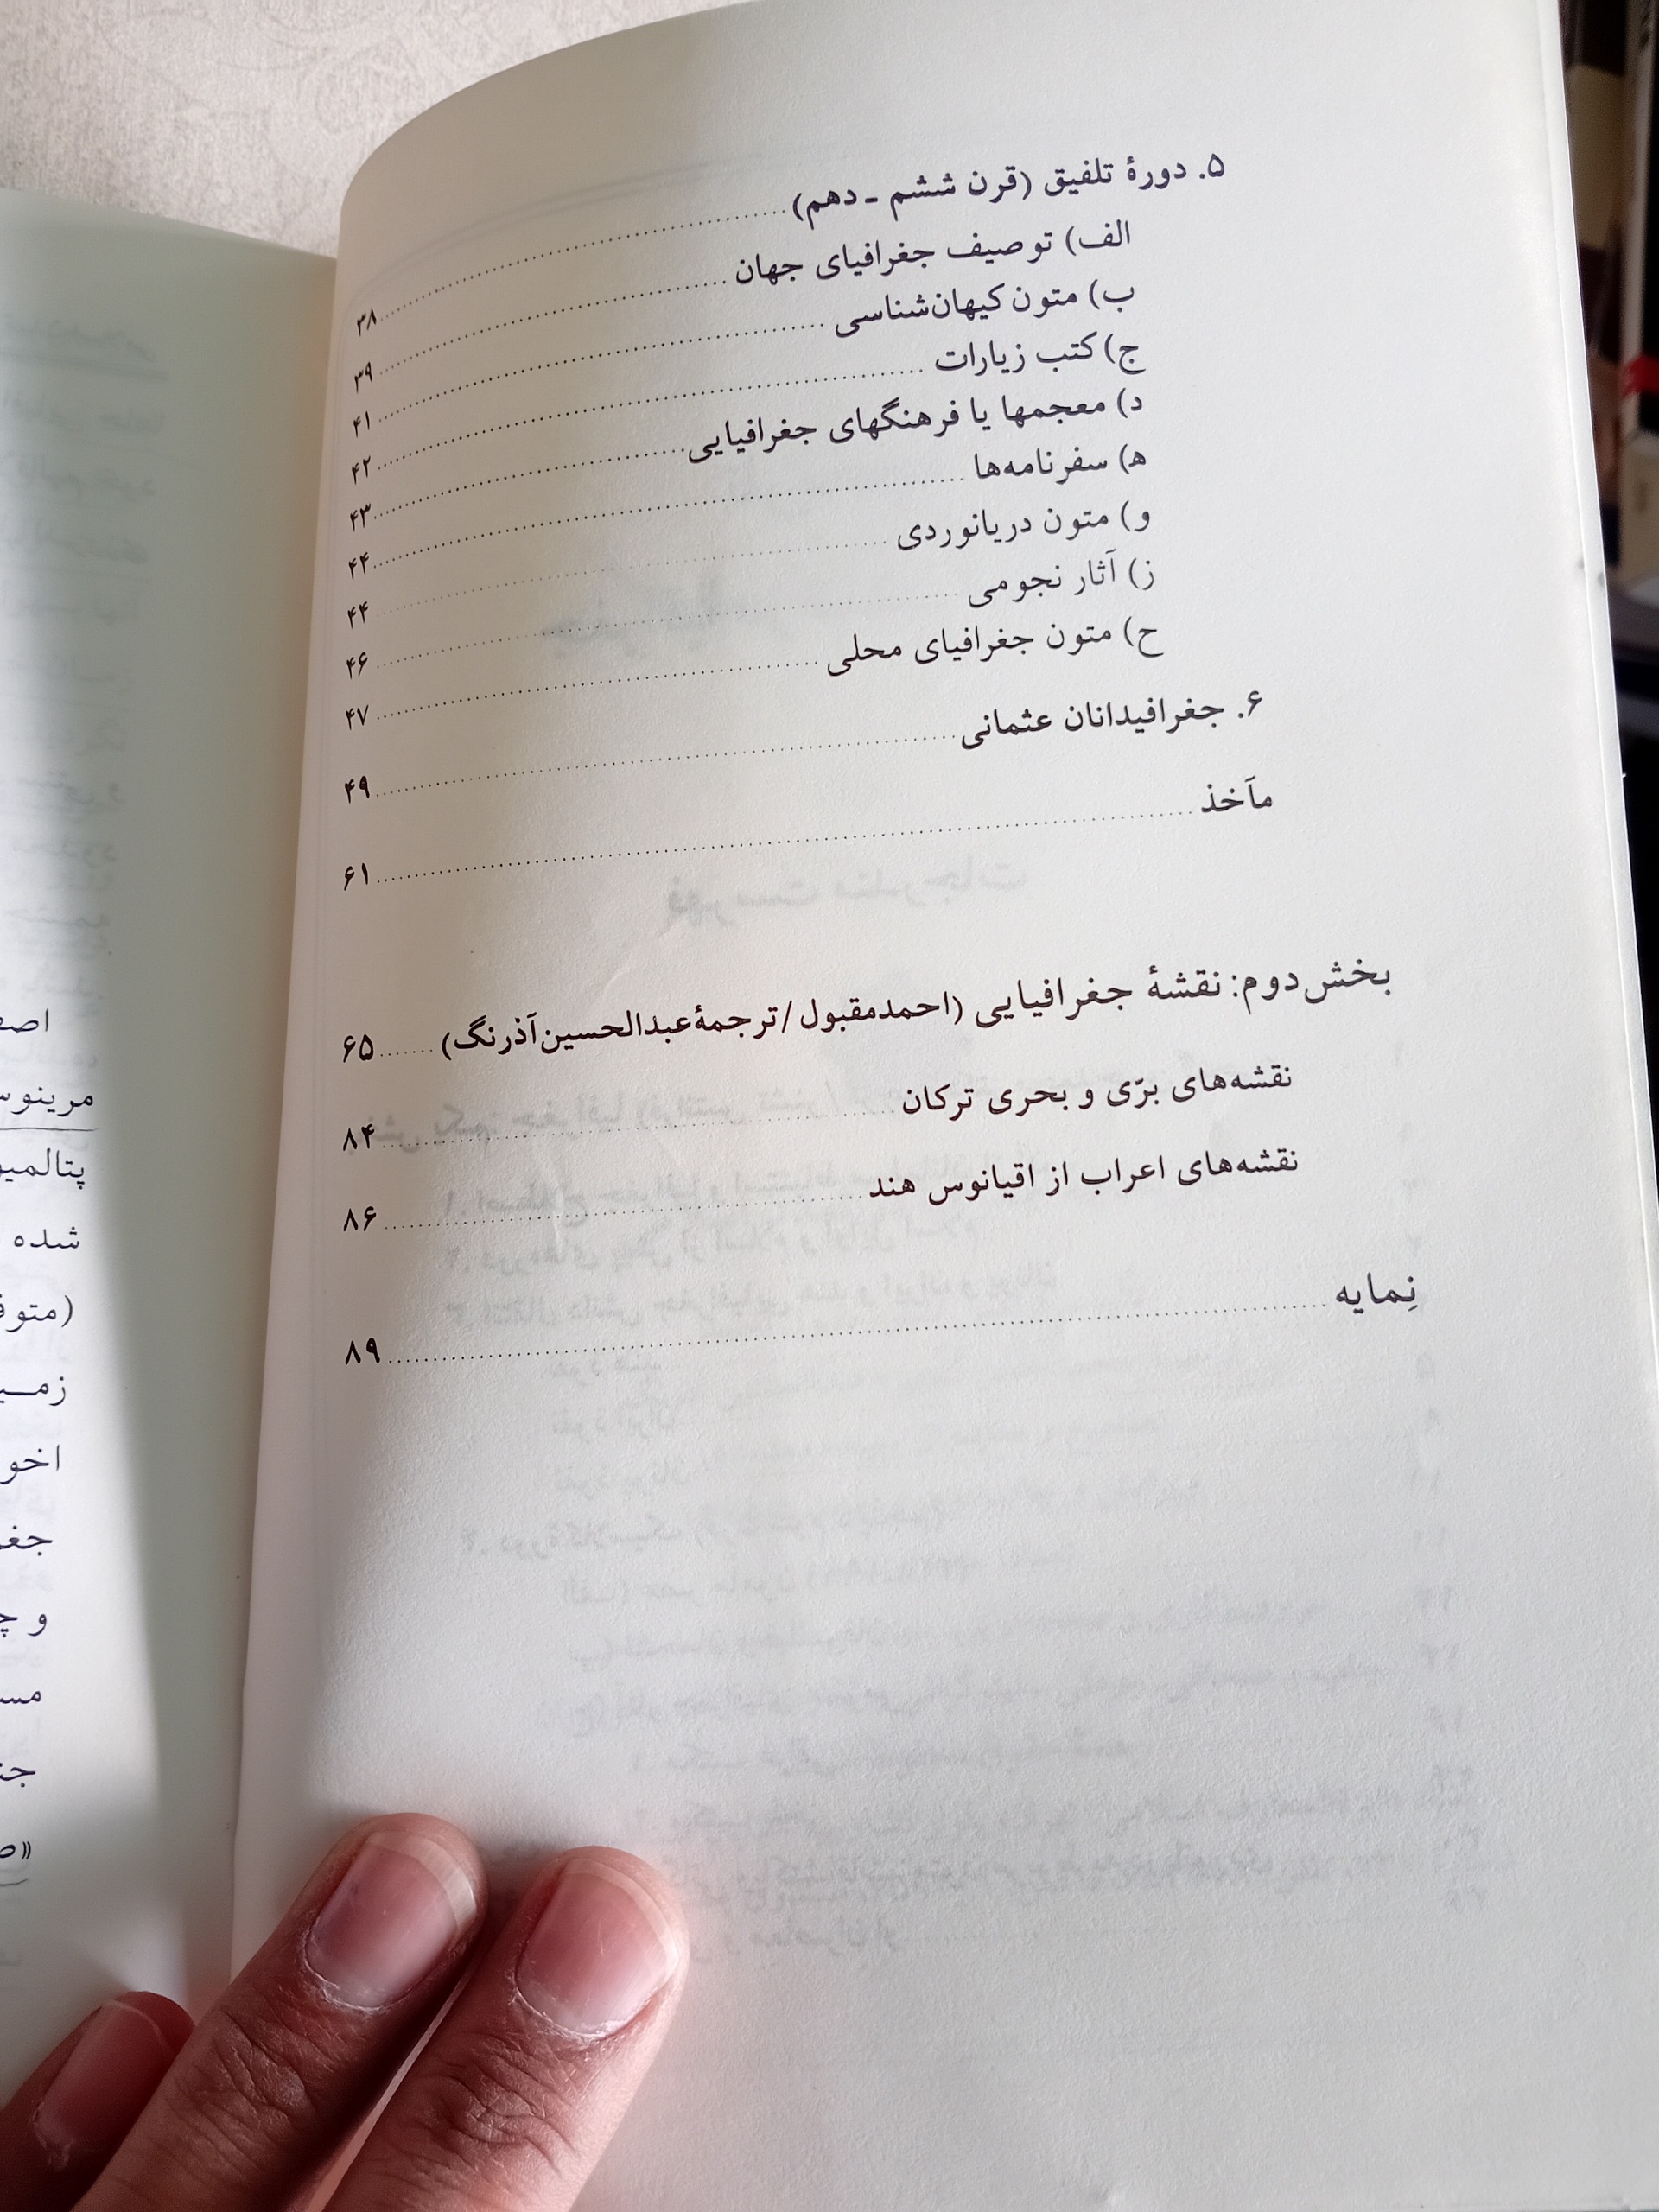 ۵. دورهٔ تلفیق (قرن ششم ـ دهم) ........ ۳۸
الف) توصیف جغرافیای جهان ........ ۳۹
ب) متون کیهان‌شناسی ........ ۴۱
ج) کتب زیارات ........ ۴۲
د) معجمها یا فرهنگهای جغرافیایی ........ ۴۳
ه‍) سفرنامه‌ها ........ ۴۴
و) متون دریانوردی ........ ۴۴
ز) آثار نجومی ........ ۴۶
ح) متون جغرافیای محلی ........ ۴۷
۶. جغرافیدانان عثمانی ........ ۴۹
مآخذ ........ ۶۱
بخش دوم: نقشهٔ جغرافیایی (احمد مقبول / ترجمهٔ عبدالحسین آذرنگ) ........ ۶۵
نقشه‌های برّی و بحری ترکان ........ ۸۴
نقشه‌های اعراب از اقیانوس هند ........ ۸۶
نِمایه ........ ۸۹
شده